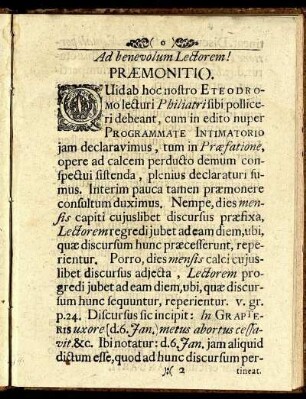 ( o )
Ad benevolum Lectorem!
PRÆMONITIO.
QUid ab hoc nostro ETEODRO-
MO lecturi Philiatri sibi pollice-
ri debeant, cum in edito nuper
PROGRAMMATE INTIMATORIO
jam declaravimus, tum in Præfatione,
opere ad calcem perducto demum con-
spectui sistenda, plenius declaraturi su-
mus. Interim pauca tamen præmonere
consultum duximus. Nempe, dies men-
sis capiti cujuslibet discursus præfixa,
Lectorem regredi jubet ad eam diem, ubi,
quæ discursum hunc præcesserunt, repe-
rientur. Porro, dies mensis calci cujus-
libet discursus adjecta, Lectorem pro-
gredi jubet ad eam diem, ubi, quæ discur-
sum hunc sequuntur, reperientur. v. gr.
p. 24. Discursus sic incipit: IN GRAPIE-
RIS uxore [d. 6. Jan.] metus abortus cessa-
vit. &c. Ibi notatur: d. 6. Jan. jam aliquid
dictum esse, quod ad hunc discursum per-
)( 2 tineat.